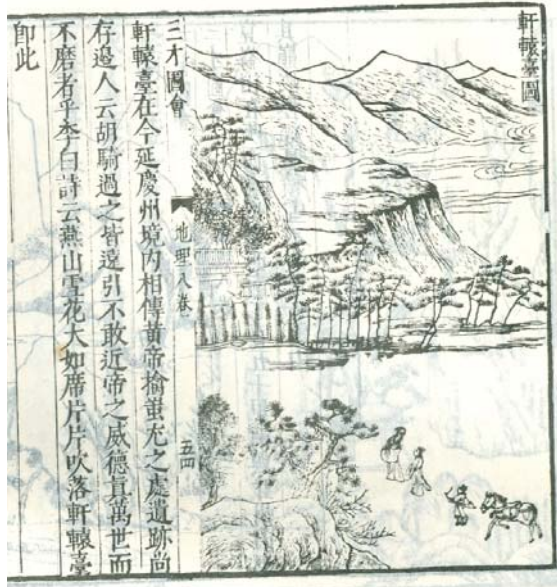 軒轅臺圖
三才圖會
地理八卷
五四
軒轅臺在今延慶州境内相傳黃帝擒蚩尤之處遺跡尚
存邉人云胡騎過之皆遠引不敢近帝之威德真萬世而
不磨者乎李白詩云燕山雪花大如席片片吹落軒轅臺
即此